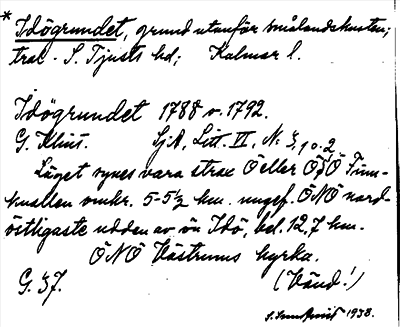 * Idögrundet, grund utanför smålandskusten;
trol. S. Tjusts hd; Kalmar l.
Idögrundet 1788 o. 1792.
G. Klint. SjA, Litt. VI, N: 3, 10. 2
Läget synes vara strax Ö eller ÖSÖ Finn-
knallen omkr. 5-5½ km. ungef. ÖNÖ nord-
östligaste udden av ön Idö, bel. 12,7 km.
ÖNÖ Västrums kyrka.
G. 37. (Vänd!)
1938.